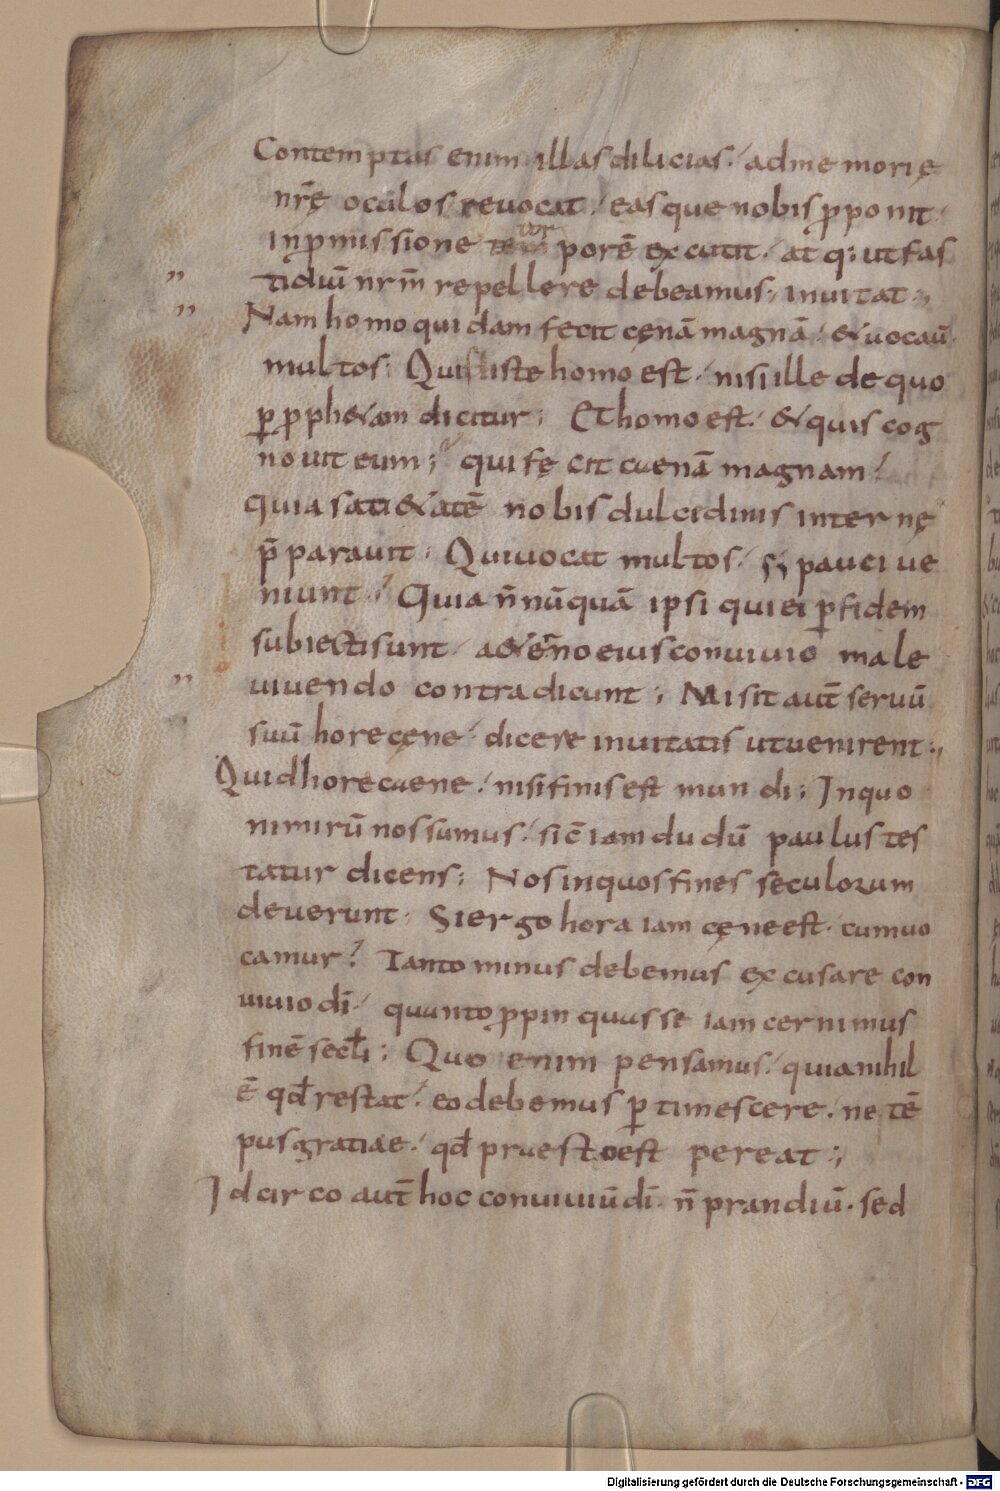 Contemptas enim illas dilicias, ad memorię
nr̄ę oculos reuocat, easque nobis ꝓponit.
inꝓmissione torporē excutit, atq; ut fas
tidiū nrm̄ repellere debeamus; inuitat;,
Nam homo quidam fecit cęnā magnā, & uocaū.
multos; Quis iste homo est, nisi ille de quo
ꝑ ꝓph&am dicitur; Et homo est. & quis cog
nouit eum; qui fęcit caenā magnam,
quia sati&atē nobis dulcedinis internę
p̄parauit. Qui uocat multos, s; pauci ue
niunt; Quia n̄nūquā ipsi qui ei ꝑ fidem
subiecti sunt, a&ernō eius conuiuio male
uiuendo contradicunt; Misit aut̄ seruū
suū hore cęne, dicere inuitatis ut uenirent;,
Quid hore caene, nisi finis est mundi; In quo
nimirū nos sumus, sic̄ iam dudū paulus tes
tatur dicens; Nos in quos fines seculorum
deuerunt; Si ergo hora iam cęne est, cum uo
camur? Tanto minus debemus excusare con
uiuio dī, quanto ꝓpinquasse iam cernimus
finē secl̄i; Quo enim pensamus, quia nihil
ē qd̄ restat, eo debemus ꝑtimescere, ne tē
pus gratiae, qd̄ praesto est pereat;,
Idcirco aut̄ hoc conuiuiū dī. n̄ prandiū. sed
Digitalisierung gefördert durch die Deutsche Forschungsgemeinschaft - DFG